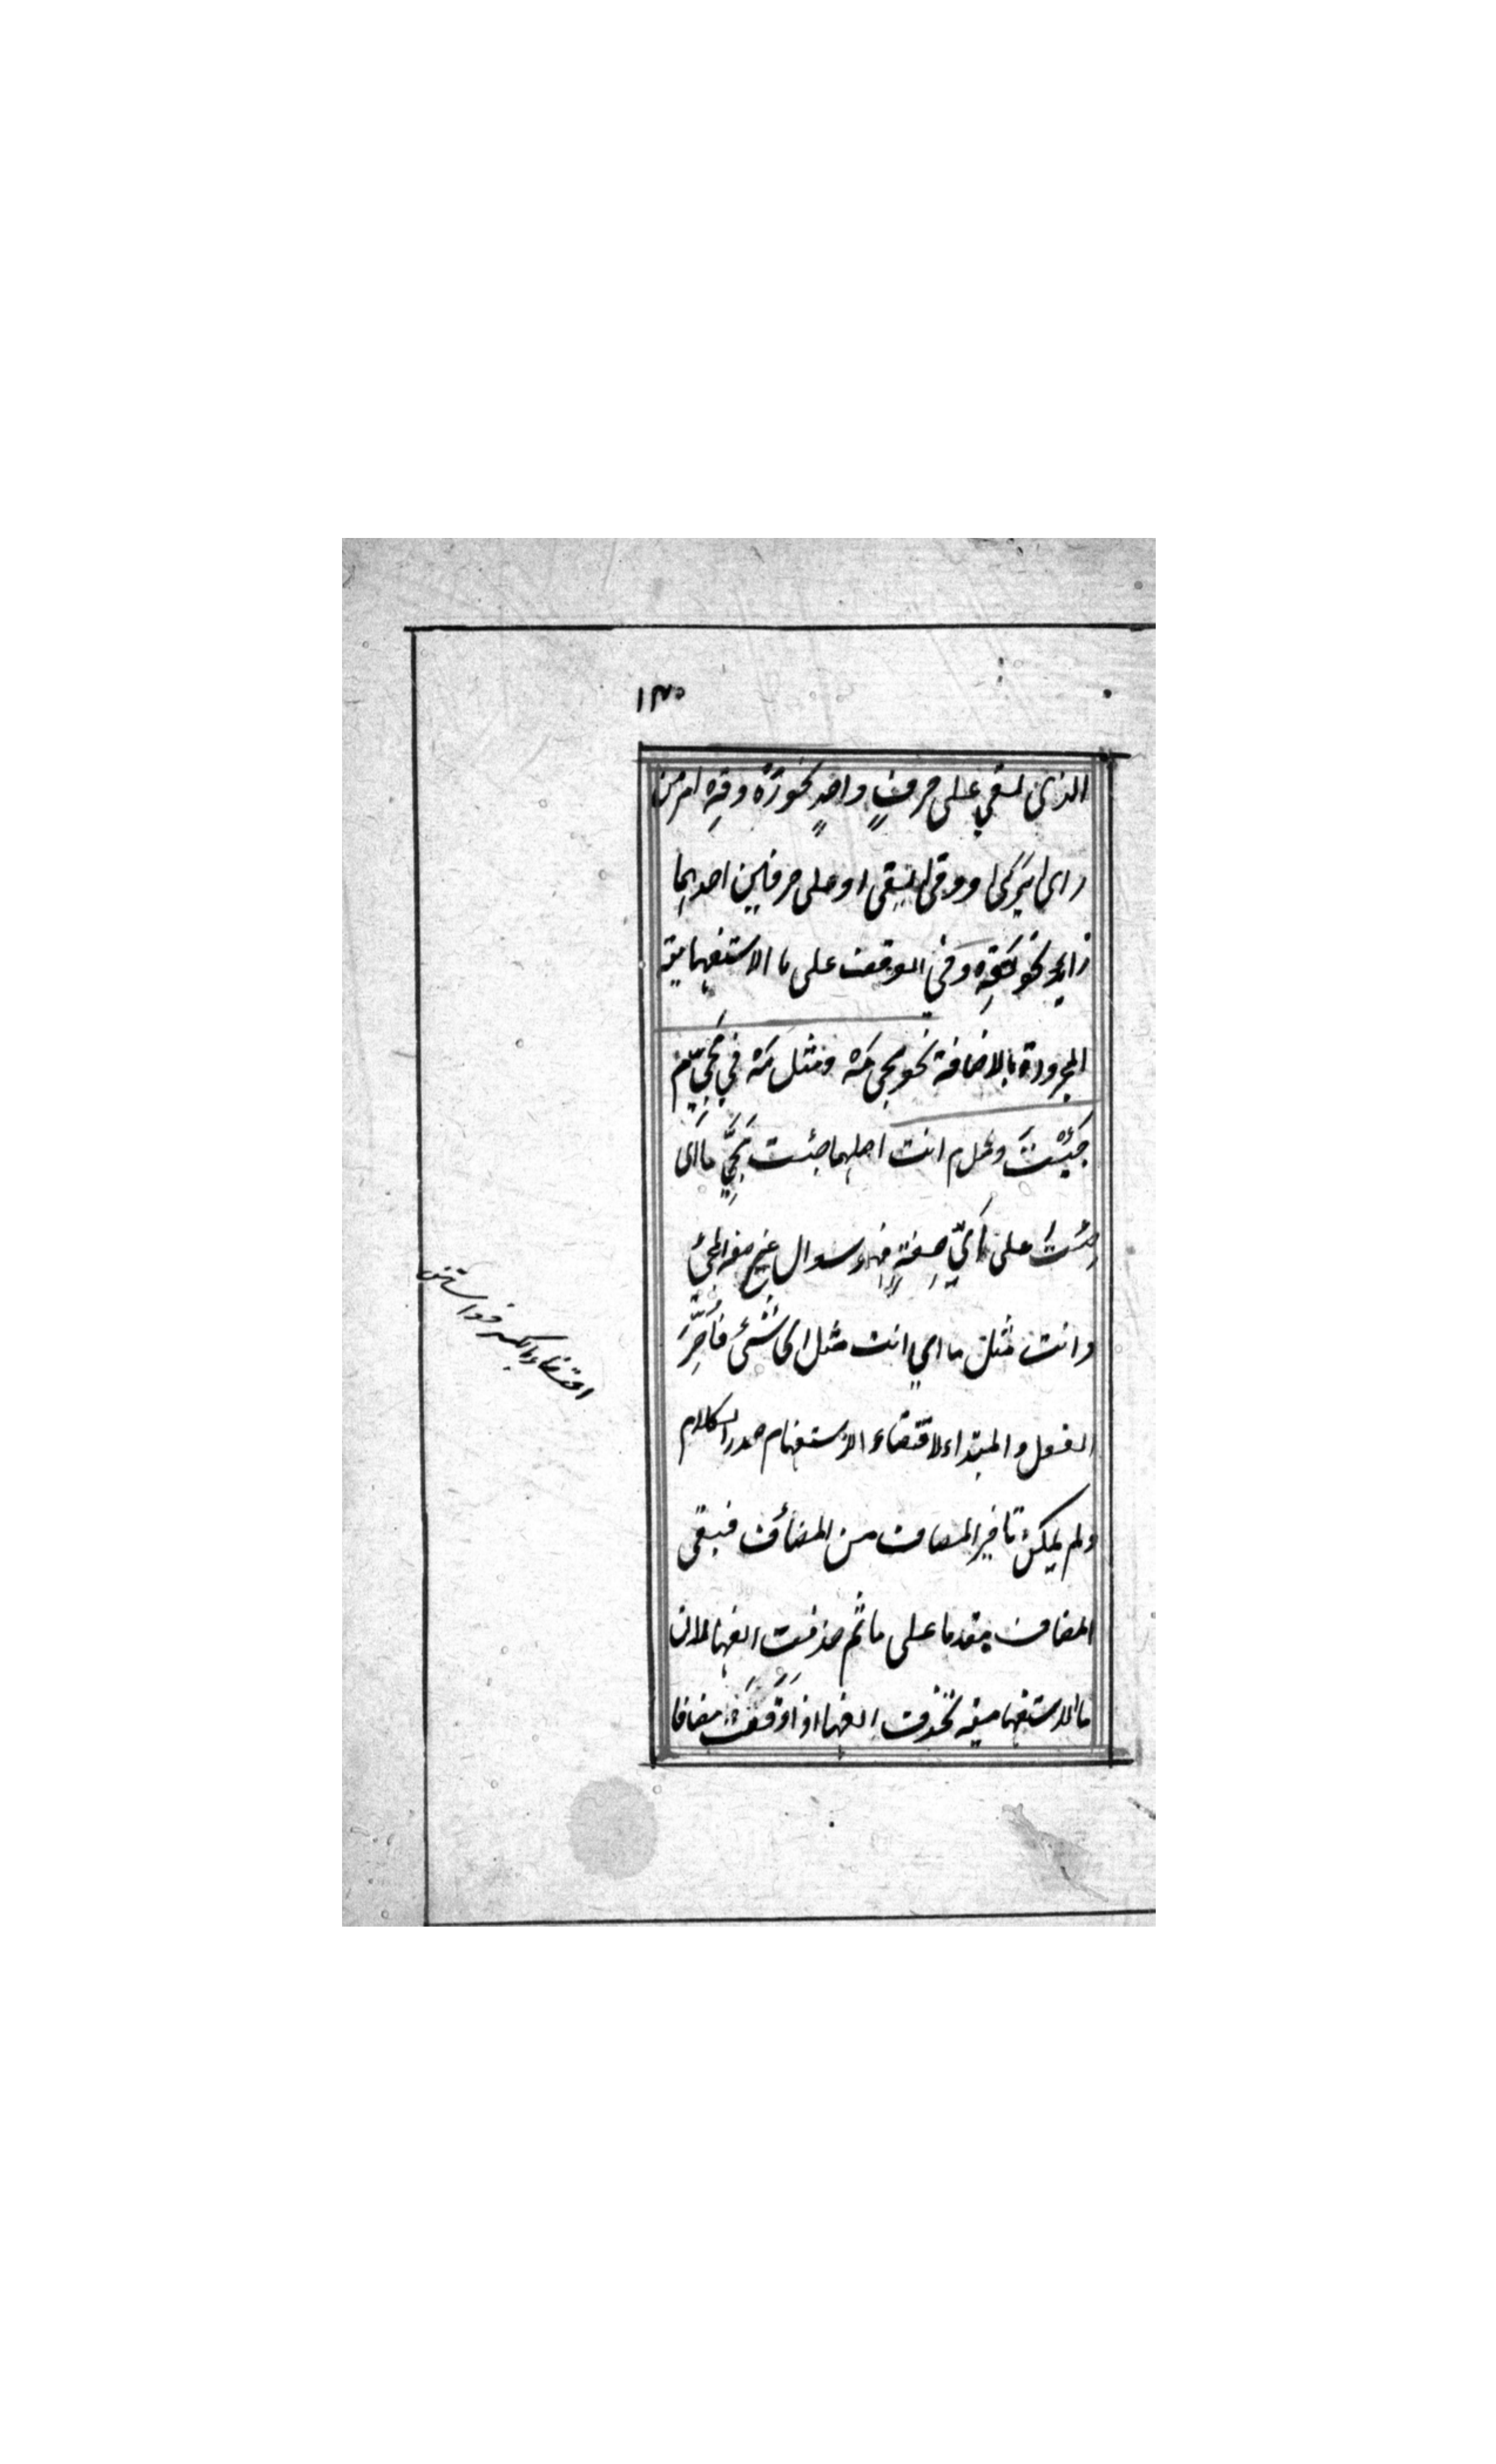 ١٣٠
الذى بقي على حرفٍ واحدٍ نحو رَهْ وقِهْ امر من
راى يرى او وقى يقى او على حرفين احدهما
زايد نحو لم يقِهْ وفي الوقف على ما الاستفهامية
المجرورة بالاضافة نحو مجى مَهْ ومثل مَهْ في مجيَ مَ
جِئْتَ ومثل م انت اصلهما جئت مجيَ ما اى
جئتَ على اَيِّ صِفةٍ فهو سوال عن صفة المجئ
وانت مثل ما اي انت مثل اى شئ فاُخِّرَ
الفعل والمبتداء لاقتضاء الاستفهام صدر الكلام
ولم يمكن تاخير المضاف من المضاف فبقى
المضاف متقدما على ما ثم حذفت الفها لان
ما الاستفهامية تحذف الفها اذا وقعت مضافا
اقتضاء بالكسر خواستن